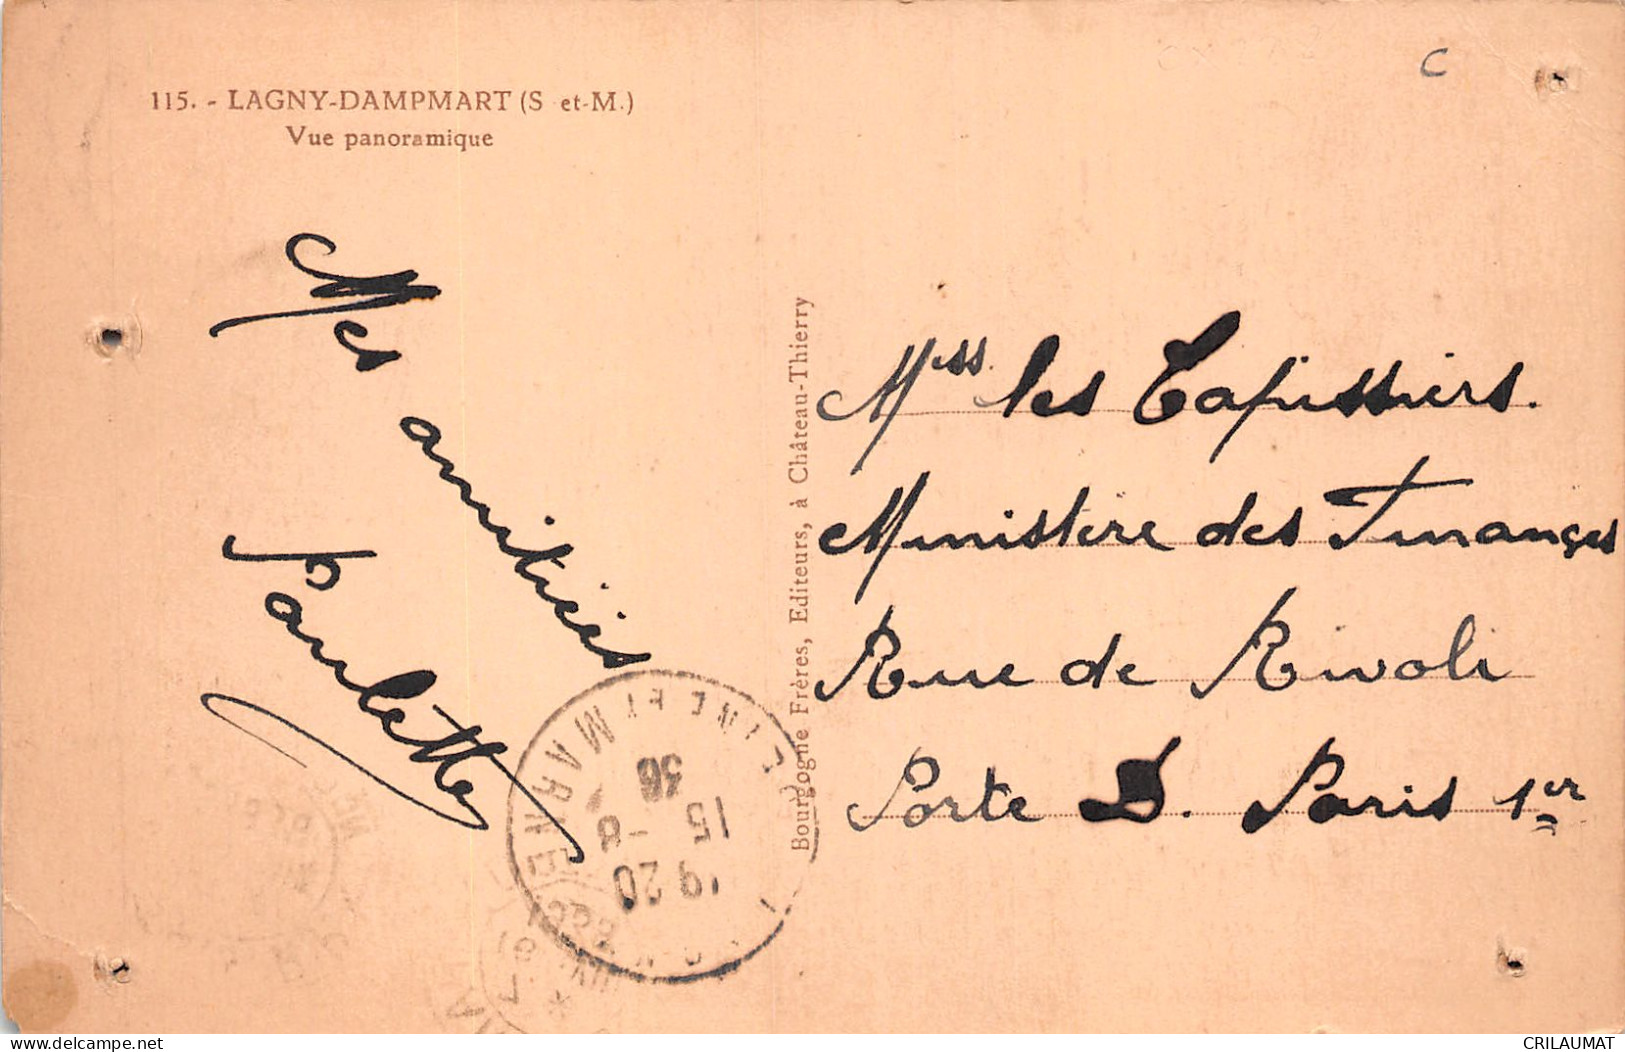 115. - LAGNY-DAMPMART (S et-M.)
Vue panoramique
C
Mes amitiés
Paulette
Bourgogne Frères, Editeurs, à Château-Thierry
Mss. les Tapissiers.
Ministère des Finances
Rue de Rivoli
Porte D. Paris 1er
SEINE ET MARNE
19 20
15 -8
36
delcampe.net
CRILAUMAT